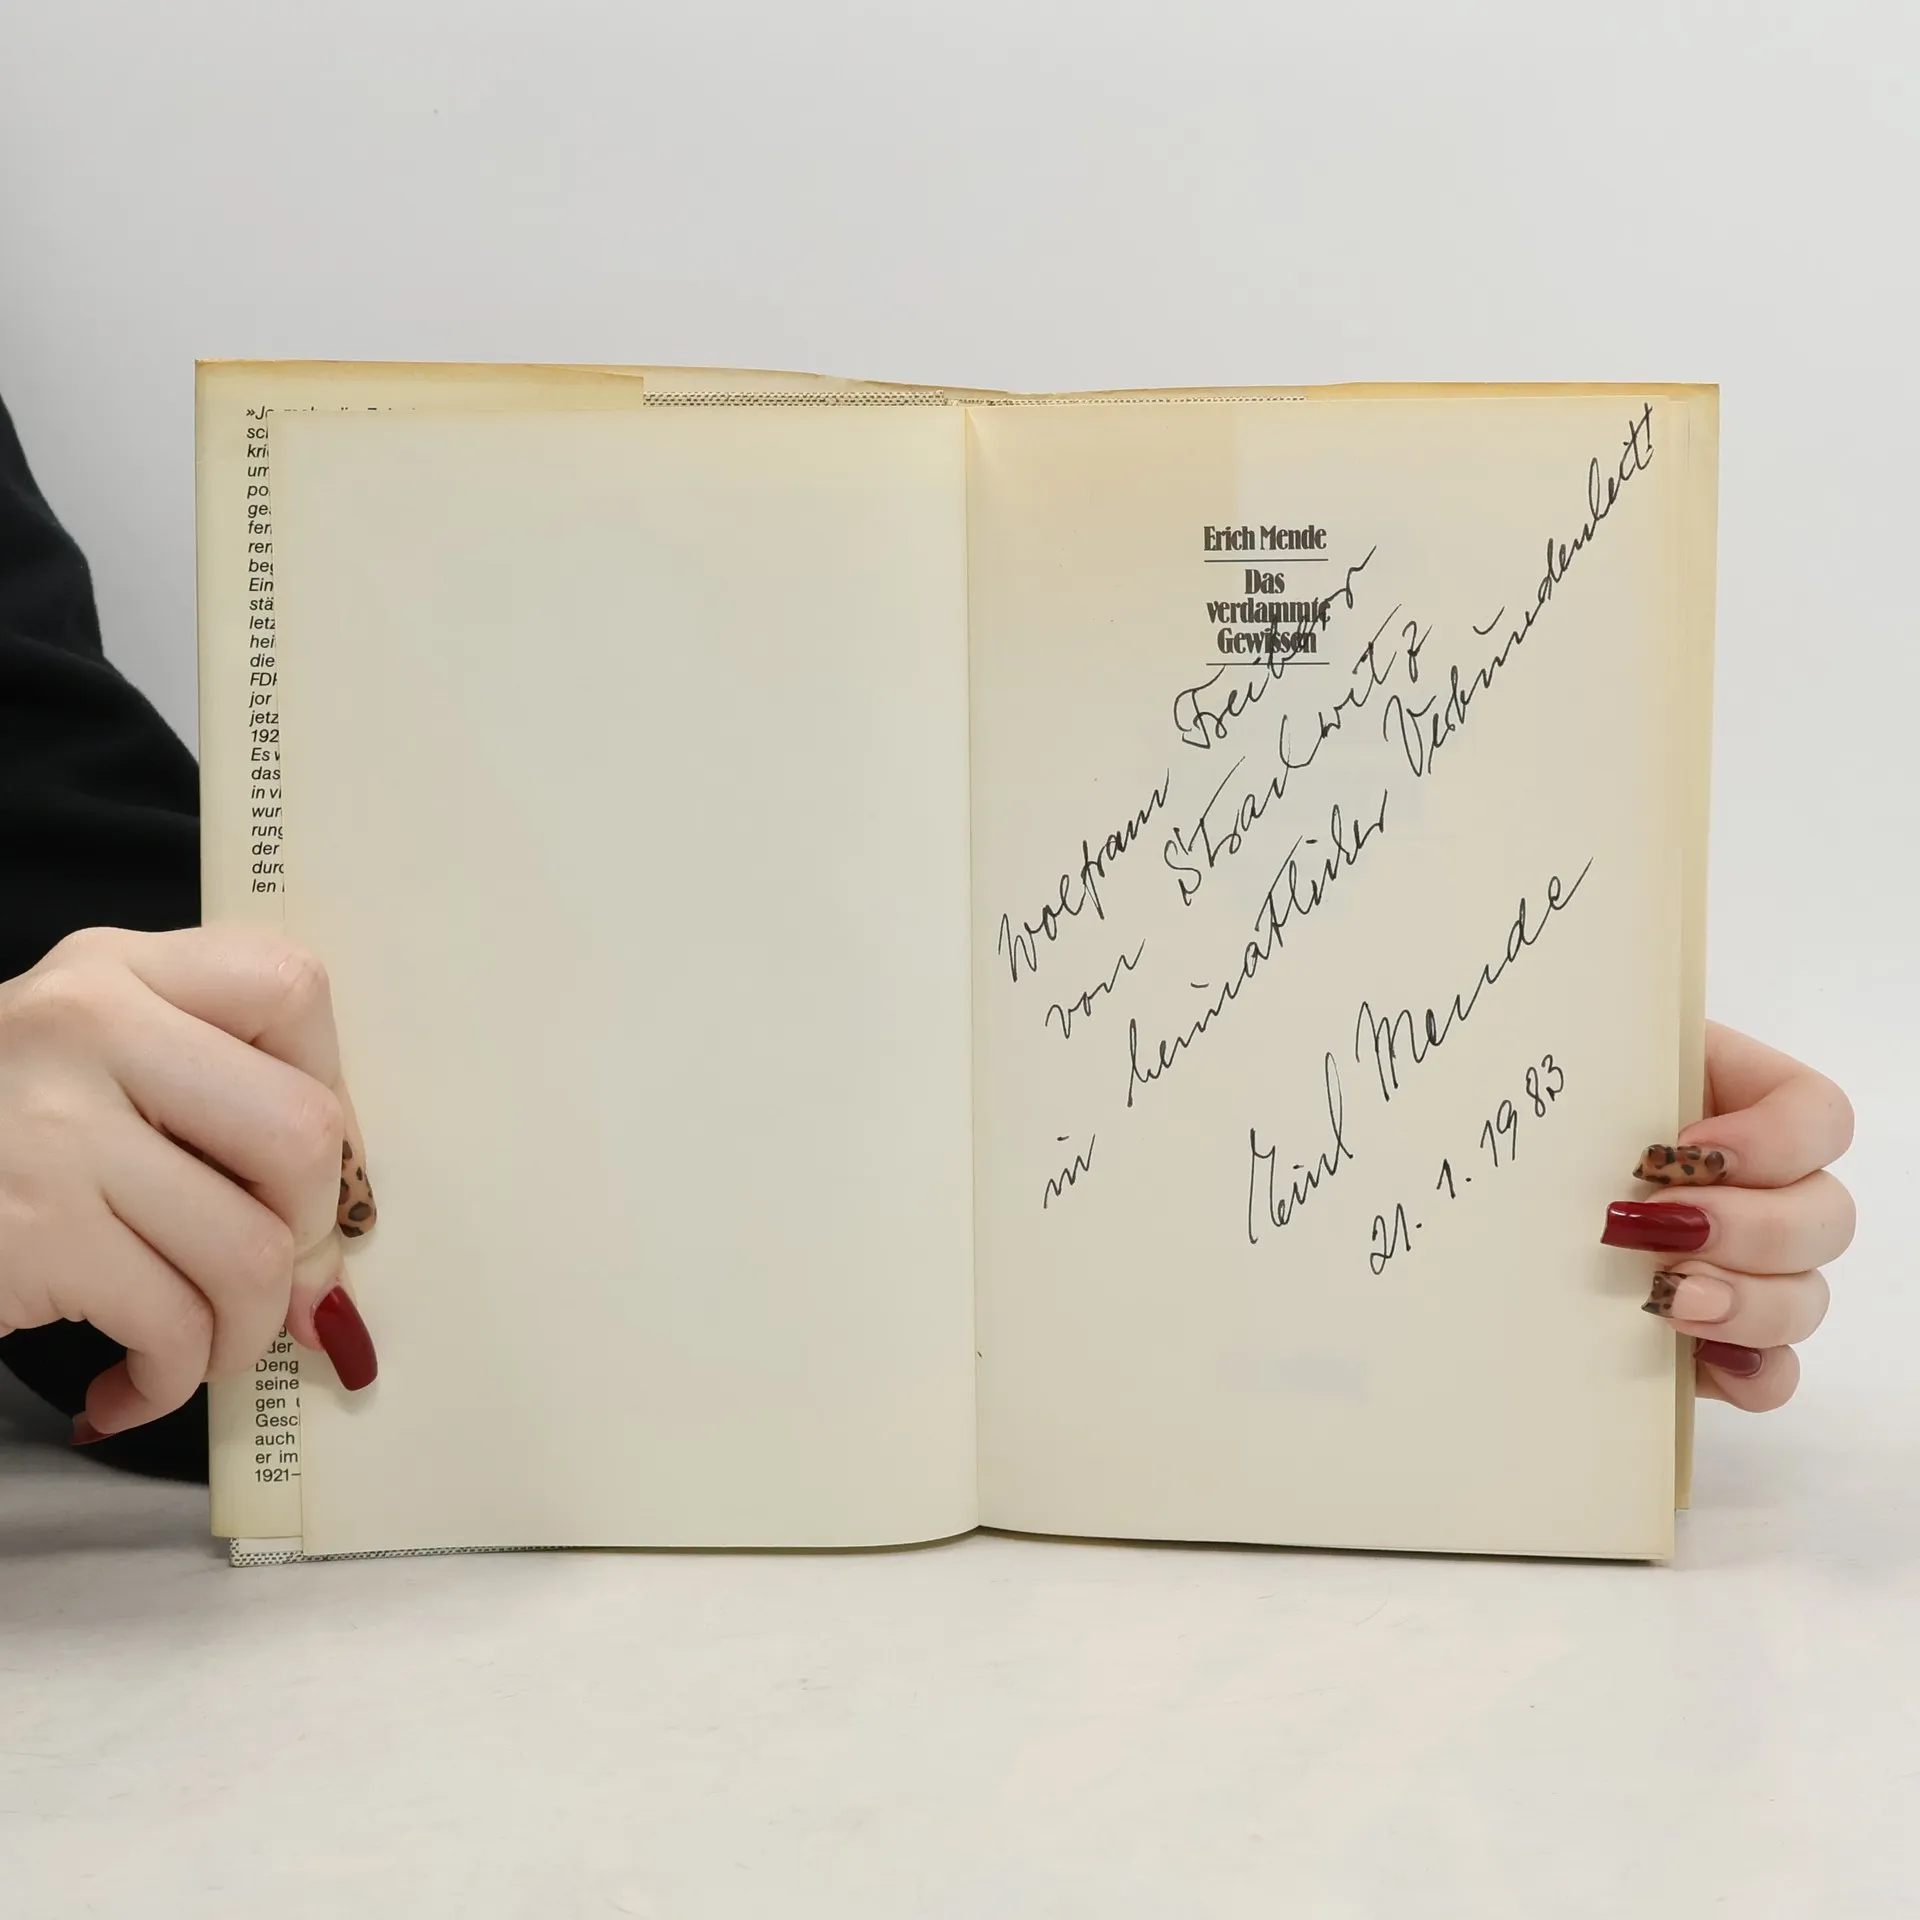 »Je mehr die Zeit
sc
kri
um
po
ge
fer
ren
beg
Ein
stä
letz
hei
die
FD
jor
jetz
192
Es v
das
in vi
wur
rung
der
durc
len
der
Deng
seine
gen
Gesc
auch
er im
1921–
Erich Mende
Das
verdammte
Gewissen
Wolfram Freiherr
von Strachwitz
in heimatlicher Verbundenheit!
Erich Mende
21. 1. 1983